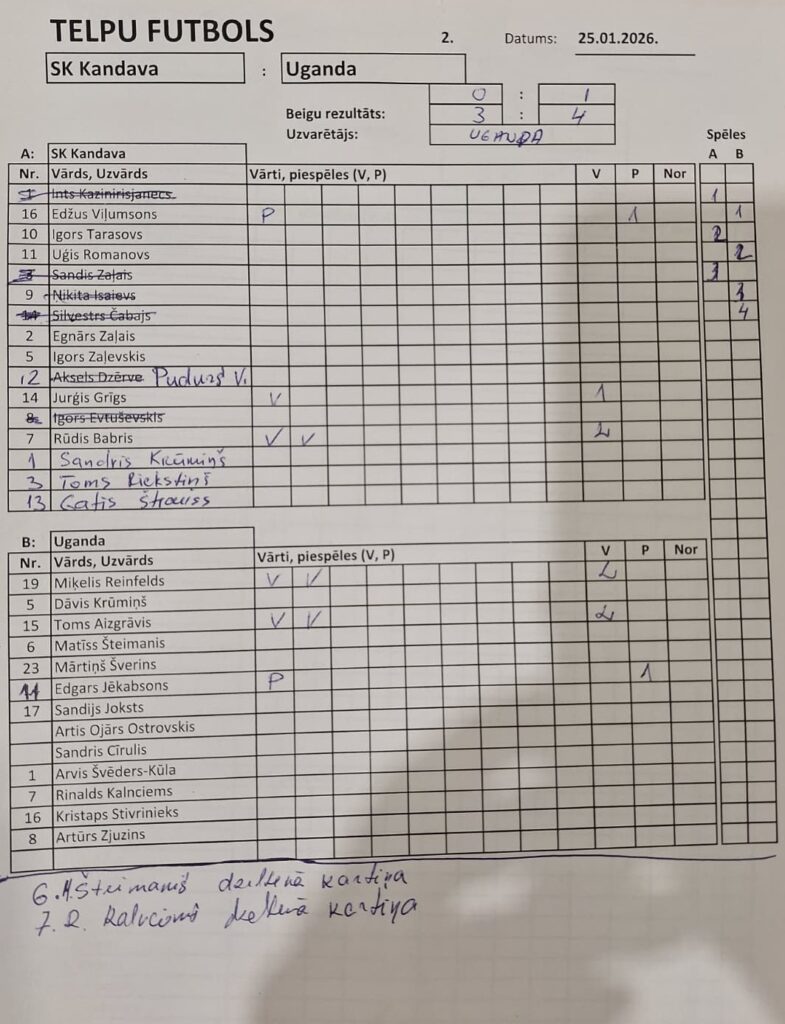 TELPU FUTBOLS 2. Datums: 25.01.2026.
SK Kandava : Uganda
0 : 1
Beigu rezultāts: 3 : 4
Uzvarētājs: UGANDA
Spēles
A: SK Kandava A B
Nr. Vārds, Uzvārds Vārti, piespēles (V, P) V P Nor
1 Ints Kazinirisjanecs 1
16 Edžus Viļumsons P 1 1
10 Igors Tarasovs 2
11 Uģis Romanovs 2
Sandis Zaļais 3
9 Ņikita Isaievs 3
Silvestrs Čabajs 4
2 Egnārs Zaļais
5 Igors Zaļevskis
12 Aksels Dzērve Pudurs V.
14 Jurģis Grīgs V 1
8 Igors Evtuševskis
7 Rūdis Babris V V 2
1 Sandris Krūmiņš
3 Toms Riekstiņš
13 Gatis Štrauss
B: Uganda
Nr. Vārds, Uzvārds Vārti, piespēles (V, P) V P Nor
19 Miķelis Reinfelds V V 2
5 Dāvis Krūmiņš
15 Toms Aizgrāvis V V 2
6 Matīss Šteimanis
23 Mārtiņš Šverins
11 Edgars Jēkabsons P 1
17 Sandijs Joksts
Artis Ojārs Ostrovskis
Sandris Cīrulis
1 Arvis Švēders-Kūla
7 Rinalds Kalnciems
16 Kristaps Stivrinieks
8 Artūrs Zjuzins
6. M. Šteimanis dzeltenā kartiņa
7. R. Kalnciems dzeltenā kartiņa